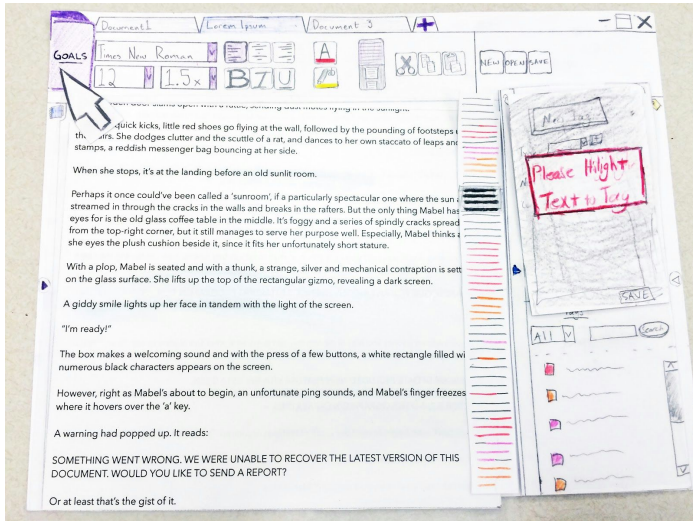 Document 1
Lorem Ipsum
Document 3
GOALS
Times New Roman
A
NEW OPEN SAVE
12
1.5x
B I U
quick kicks, little red shoes go flying at the wall, followed by the pounding of footsteps
She dodges clutter and the scuttle of a rat, and dances to her own staccato of leaps and
stamps, a reddish messenger bag bouncing at her side.
When she stops, it's at the landing before an old sunlit room.
Perhaps it once could've been called a 'sunroom', if a particularly spectacular one where the sun
streamed in through the cracks in the walls and breaks in the rafters. But the only thing Mabel has
eyes for is the old glass coffee table in the middle. It's foggy and a series of spindly cracks spread
from the top-right corner, but it still manages to serve her purpose well. Especially, Mabel thinks
she eyes the plush cushion beside it, since it fits her unfortunately short stature.
With a plop, Mabel is seated and with a thunk, a strange, silver and mechanical contraption is sett
on the glass surface. She lifts up the top of the rectangular gizmo, revealing a dark screen.
A giddy smile lights up her face in tandem with the light of the screen.
"I'm ready!"
The box makes a welcoming sound and with the press of a few buttons, a white rectangle filled wi
numerous black characters appears on the screen.
However, right as Mabel's about to begin, an unfortunate ping sounds, and Mabel's finger freezes
where it hovers over the 'a' key.
A warning had popped up. It reads:
SOMETHING WENT WRONG. WE WERE UNABLE TO RECOVER THE LATEST VERSION OF THIS
DOCUMENT. WOULD YOU LIKE TO SEND A REPORT?
Or at least that's the gist of it.
New Tag
Please Hilight
Text to Tag
SAVE
Tags
All
Search